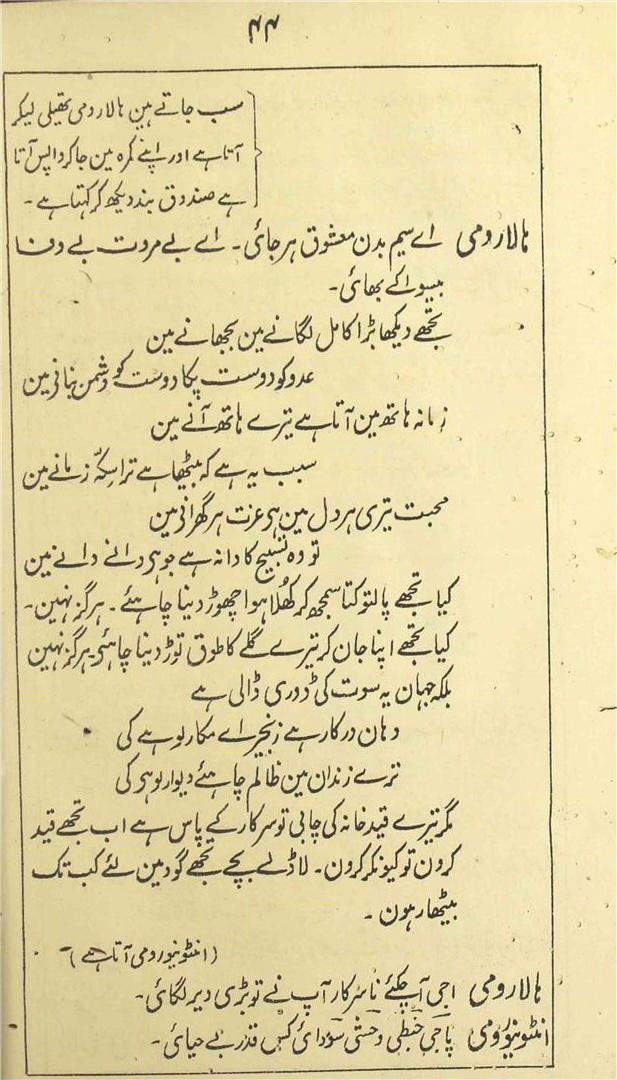 ۴۴
سب جاتے ہین ہالارومی تھیلی لیکر
آتا ہے اور اپنے کمرہ مین جا کر واپس آتا
ہے صندوق بند دیکھ کر کہتا ہے۔
ہالارومی اے سیم بدن معشوق ہرجائی۔ اے بے مروت بے وفا
بیسوا کے بھائی۔
تجھے دیکھا بڑا کامل لگانے مین بجھانے مین
عدو کو دوست پکا دوست کو دشمن بنانی مین
زمانہ ہاتھ مین آتا ہے تیرے ہاتھ آنے مین
سبب یہ ہے کہ بیٹھا ہے ترا سکّہ زمانے مین
محبت تیری ہر دل مین ہی عزت ہر گھرانی مین
تو وہ تسبیح کا دانہ ہے جو ہی دانے دانے مین
کیا تجھے پالتو کتا سمجھ کر کھُلا ہوا چھوڑ دینا چاہئے۔ ہرگز نہین۔
کیا تجھے اپنا جان کر تیرے گلے کا طوق توڑ دینا چاہئی۔ ہرگز نہین
بلکہ جہان یہ سوت کی ڈوری ڈالی ہے
وہان درکار ہے زنجیر اے مکار لوہے کی
ترے زندان مین ظالم چاہئے دیوار لوہی کی
مگر تیرے قید خانہ کی چابی تو سرکار کے پاس ہے اب تجھے قید
کرون تو کیونکر کرون۔ لاڈلے بچے تجھے گود مین لئے کب تک
بیٹھا رہون۔
(انٹونیو رومی آتا ہے)۔
ہالارومی اجی آ چکئے نا سرکار آپ نے تو بڑی دیر لگائی۔
انٹونیورومی پاجی خبطی وحشی سودائی کس قدر بے حیائی۔